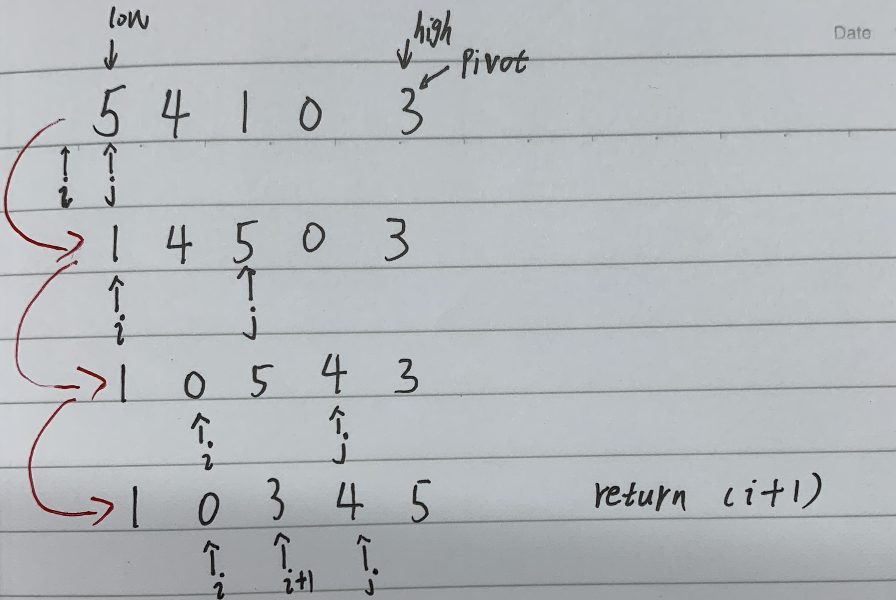 low high
Date
pivot
5 4 1 0 3
i j
1 4 5 0 3
i j
1 0 5 4 3
i j
1 0 3 4 5 return (i+1)
i i+1 j